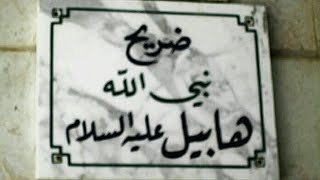 ضريح
نبي الله
هابيل عليه السلام